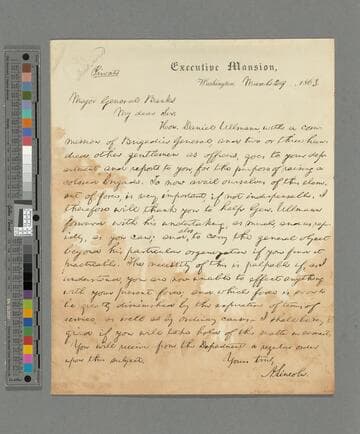 Private
Executive Mansion,
Washington, March 29, 1863.
Major General Banks
My dear Sir:
Hon. Daniel Ullmann, with a com-
mission of Brigadier General, and two or three hun-
dred other gentlemen as officers, goes to your dep-
artment and reports to you, for the purpose of raising a
colored brigade. To now avail ourselves of this elem-
ent of force, is very important, if not indispensable. I
therefore will thank you to help Gen. Ullmann
forward with his undertaking, as much, and as rap-
idly, as you can; and also to carry the general object
beyond his particular organization if you find it
practicable. The necessity of this is palpable if, as I
understand, you are now unable to effect anything
with your present force; and which force is soon to
be greatly diminished by the expiration of terms of
service, as well as by ordinary causes. I shall be
if you will take hold of the matter in earnest.
You will receive from the Department a regular order
upon this subject.
Yours truly,
A. Lincoln.